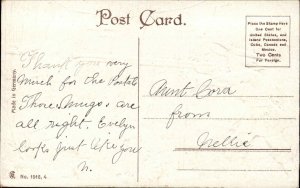 Post Card.
Place the Stamp Here
One Cent for
United States, and
Island Possessions,
Cuba, Canada and
Mexico.
Two Cents
For Foreign.
Made in Germany
Thank you very
much for the Postal
Those are
all right. Evelyn
looks just like you
N.
Aunt Cora
from
Nellie
No. 1016, 4